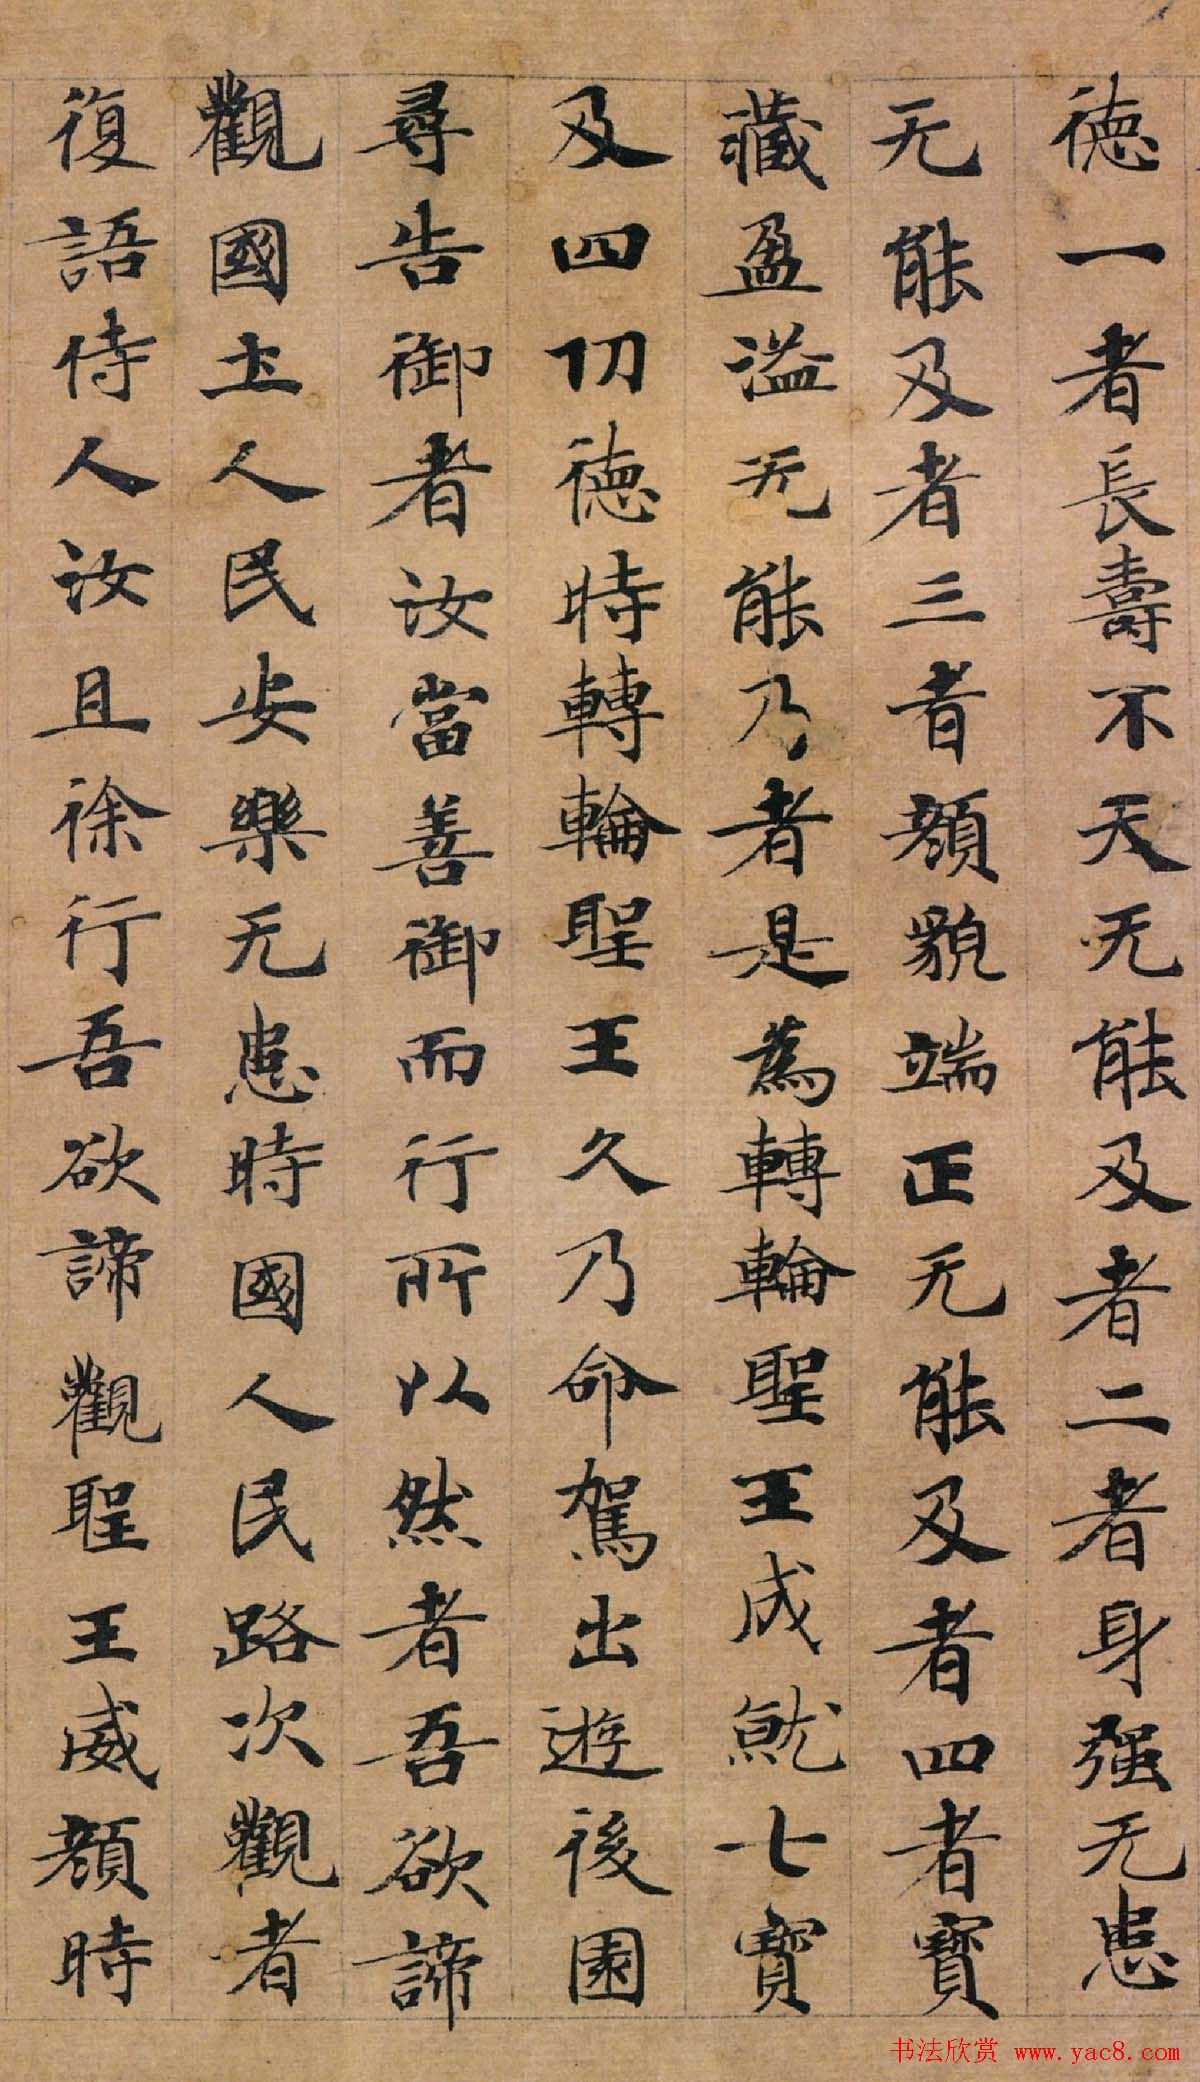 德一者長壽不夭无能及者二者身强无患
无能及者三者顏貌端正无能及者四者寶
藏盈溢无能乃者是為轉輪聖王成就七寶
及四功德時轉輪聖王久乃命駕出遊後園
尋告御者汝當善御而行所以然者吾欲諦
觀國土人民安樂无患時國人民路次觀者
復語侍人汝且徐行吾欲諦觀聖王威顏時
书法欣赏 www.yac8.com